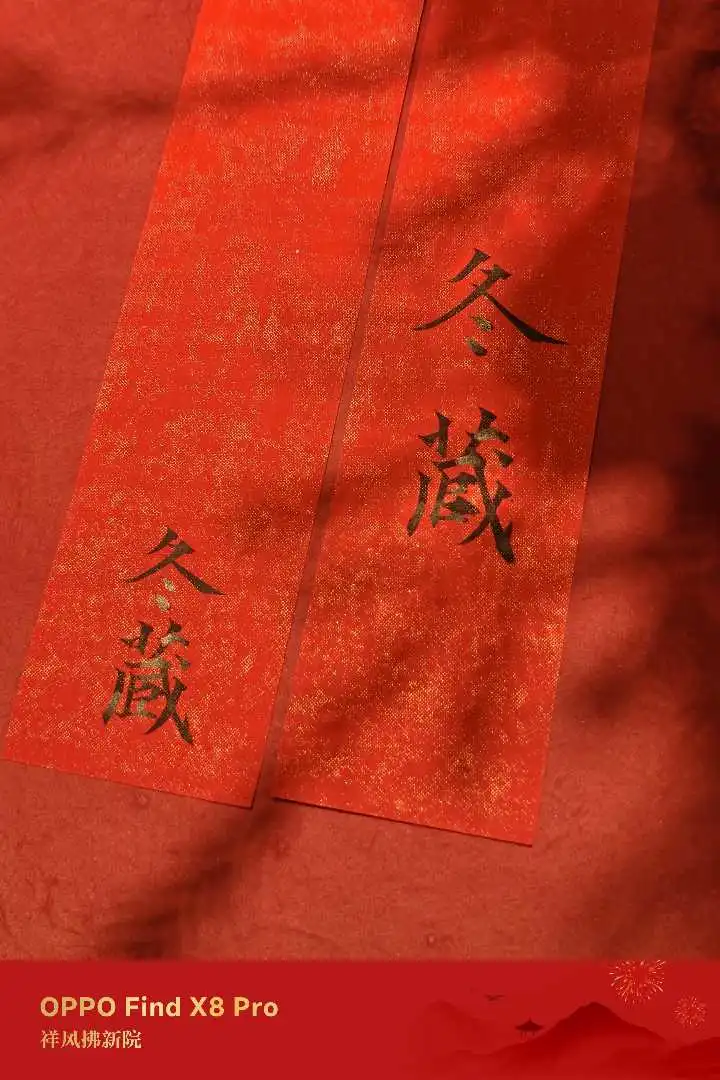 冬
藏
冬
藏
OPPO Find X8 Pro
祥风拂新院